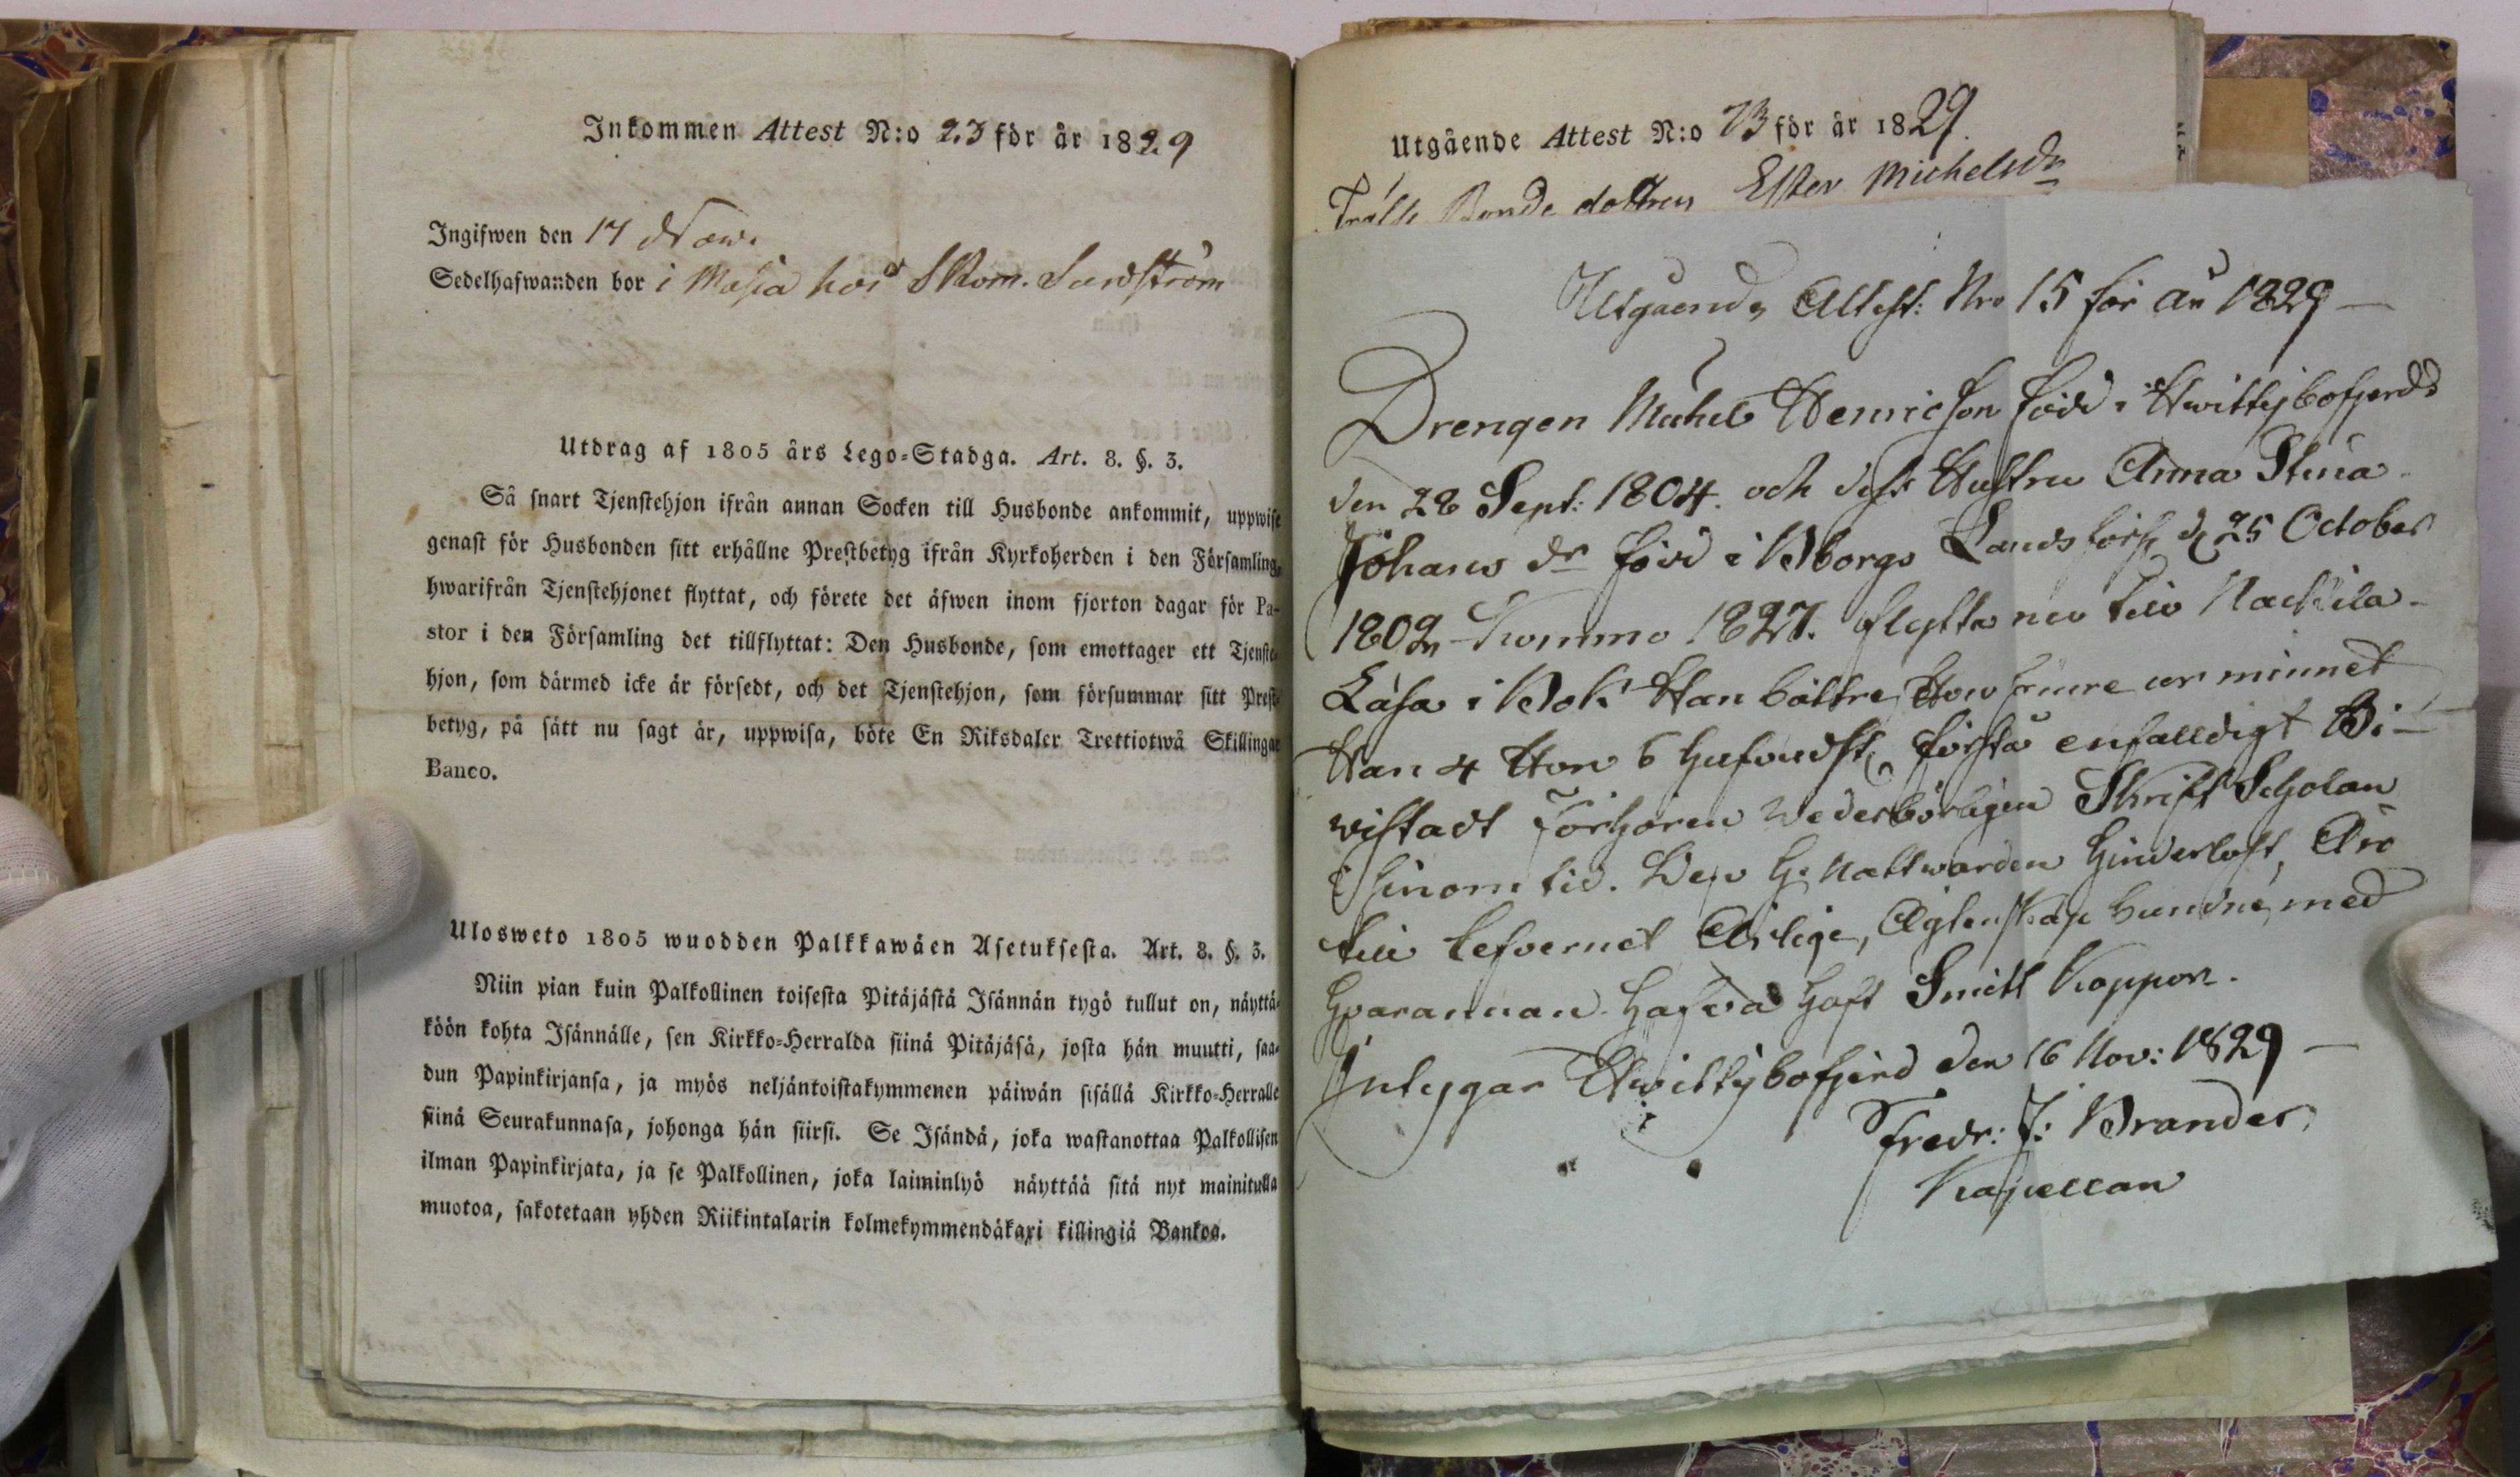 Inkommen Attest N:o 23 för år 1829
Ingifwen den 17 Now.
Sedelhafwanden bor i Masia hos Skom. Sundström
Utdrag af 1805 års Lego-Stadga. Art. 8. §. 3.
Så snart Tjenstehjon ifrån annan Socken till Husbonde ankommit, uppwise
genast för Husbonden sitt erhållne Prestbetyg ifrån Kyrkoherden i den Församling,
hwarifrån Tjenstehjonet flyttat, och förete det äfwen inom fjorton dagar för Pa-
stor i den Församling det tillflyttat: Den Husbonde, som emottager ett Tjenste-
hjon, som därmed icke är försedt, och det Tjenstehjon, som försummar sitt Prest-
betyg, på sätt nu sagt är, uppwisa, böte En Riksdaler Trettiotwå Skillingar
Banco.
Ulosweto 1805 wuodden Palkkawäen Asetuksesta. Art. 8. §. 3.
Niin pian kuin Palkollinen toisesta Pitäjästä Isännän tygö tullut on, näyttä-
köön kohta Isännälle, sen Kirkko-Herralda siinä Pitäjäsä, josta hän muutti, saa-
dun Papinkirjansa, ja myös neljäntoistakymmenen päiwän sisällä Kirkko-Herralle
siinä Seurakunnasa, johonga hän siirsi. Se Isändä, joka wastanottaa Palkollisen
ilman Papinkirjata, ja se Palkollinen, joka laiminlyö näyttää sitä nyt mainitulla
muotoa, sakotetaan yhden Riikintalarin kolmekymmendäkaxi killingiä Bankoa.
Utgående Attest N:o 73 för år 1829.
Bonde dottren Ester Michelsdr
Utgående Attest: Nro 15 för år 1829
Drengen Michel Henricson född i Hwittisbofjerd
den 28 Sept: 1804. och dess Hustru Anna Stina
Johans dr född i Bborgs Landsförs d 25 October
1802 Komme 1827. flytta nu till Nackila
Läsa i Bok Han bättre Hon sämre ur minnet
Han 4 Hon 6 Hufvudst, förstå enfalldigt Bi-
wistadt Förhören wederbörligen Skrift Scholan
i sinom tid. Den H. Nattwarden hinderlöst, Äro
till Lefvernet Ärlige, Ägtenskap bundne med
hvarannan. Hafva haft Smitt Koppor.
Intygar Hwittisbofjerd den 16 Nov: 1829
Fredr: J: Brander,
Kapellan